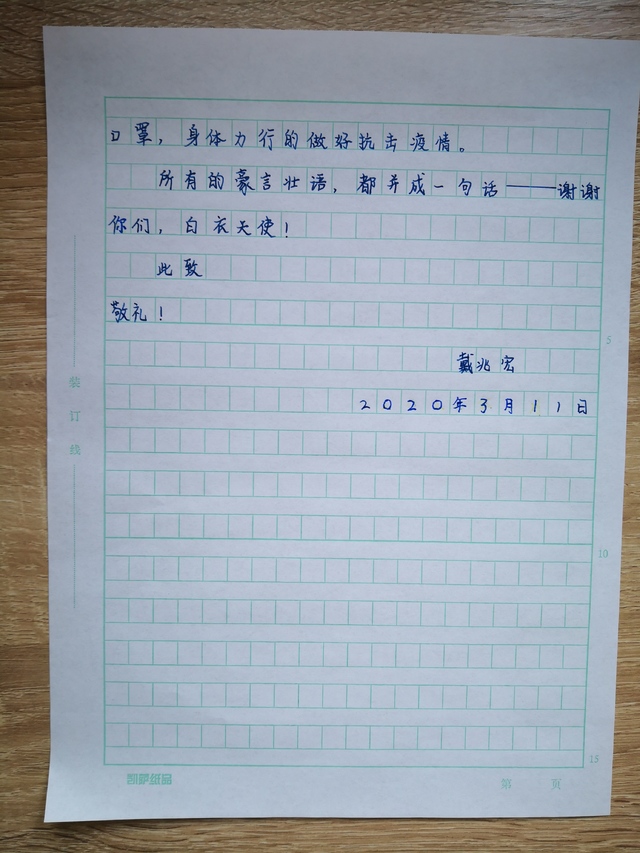 口罩，身体力行的做好抗击疫情。
所有的豪言壮语，都并成一句话——谢谢
你们，白衣天使！
此致
敬礼！
5
戴兆宏
2020年3月11日
装订线
10
15
凯萨纸品
第 页